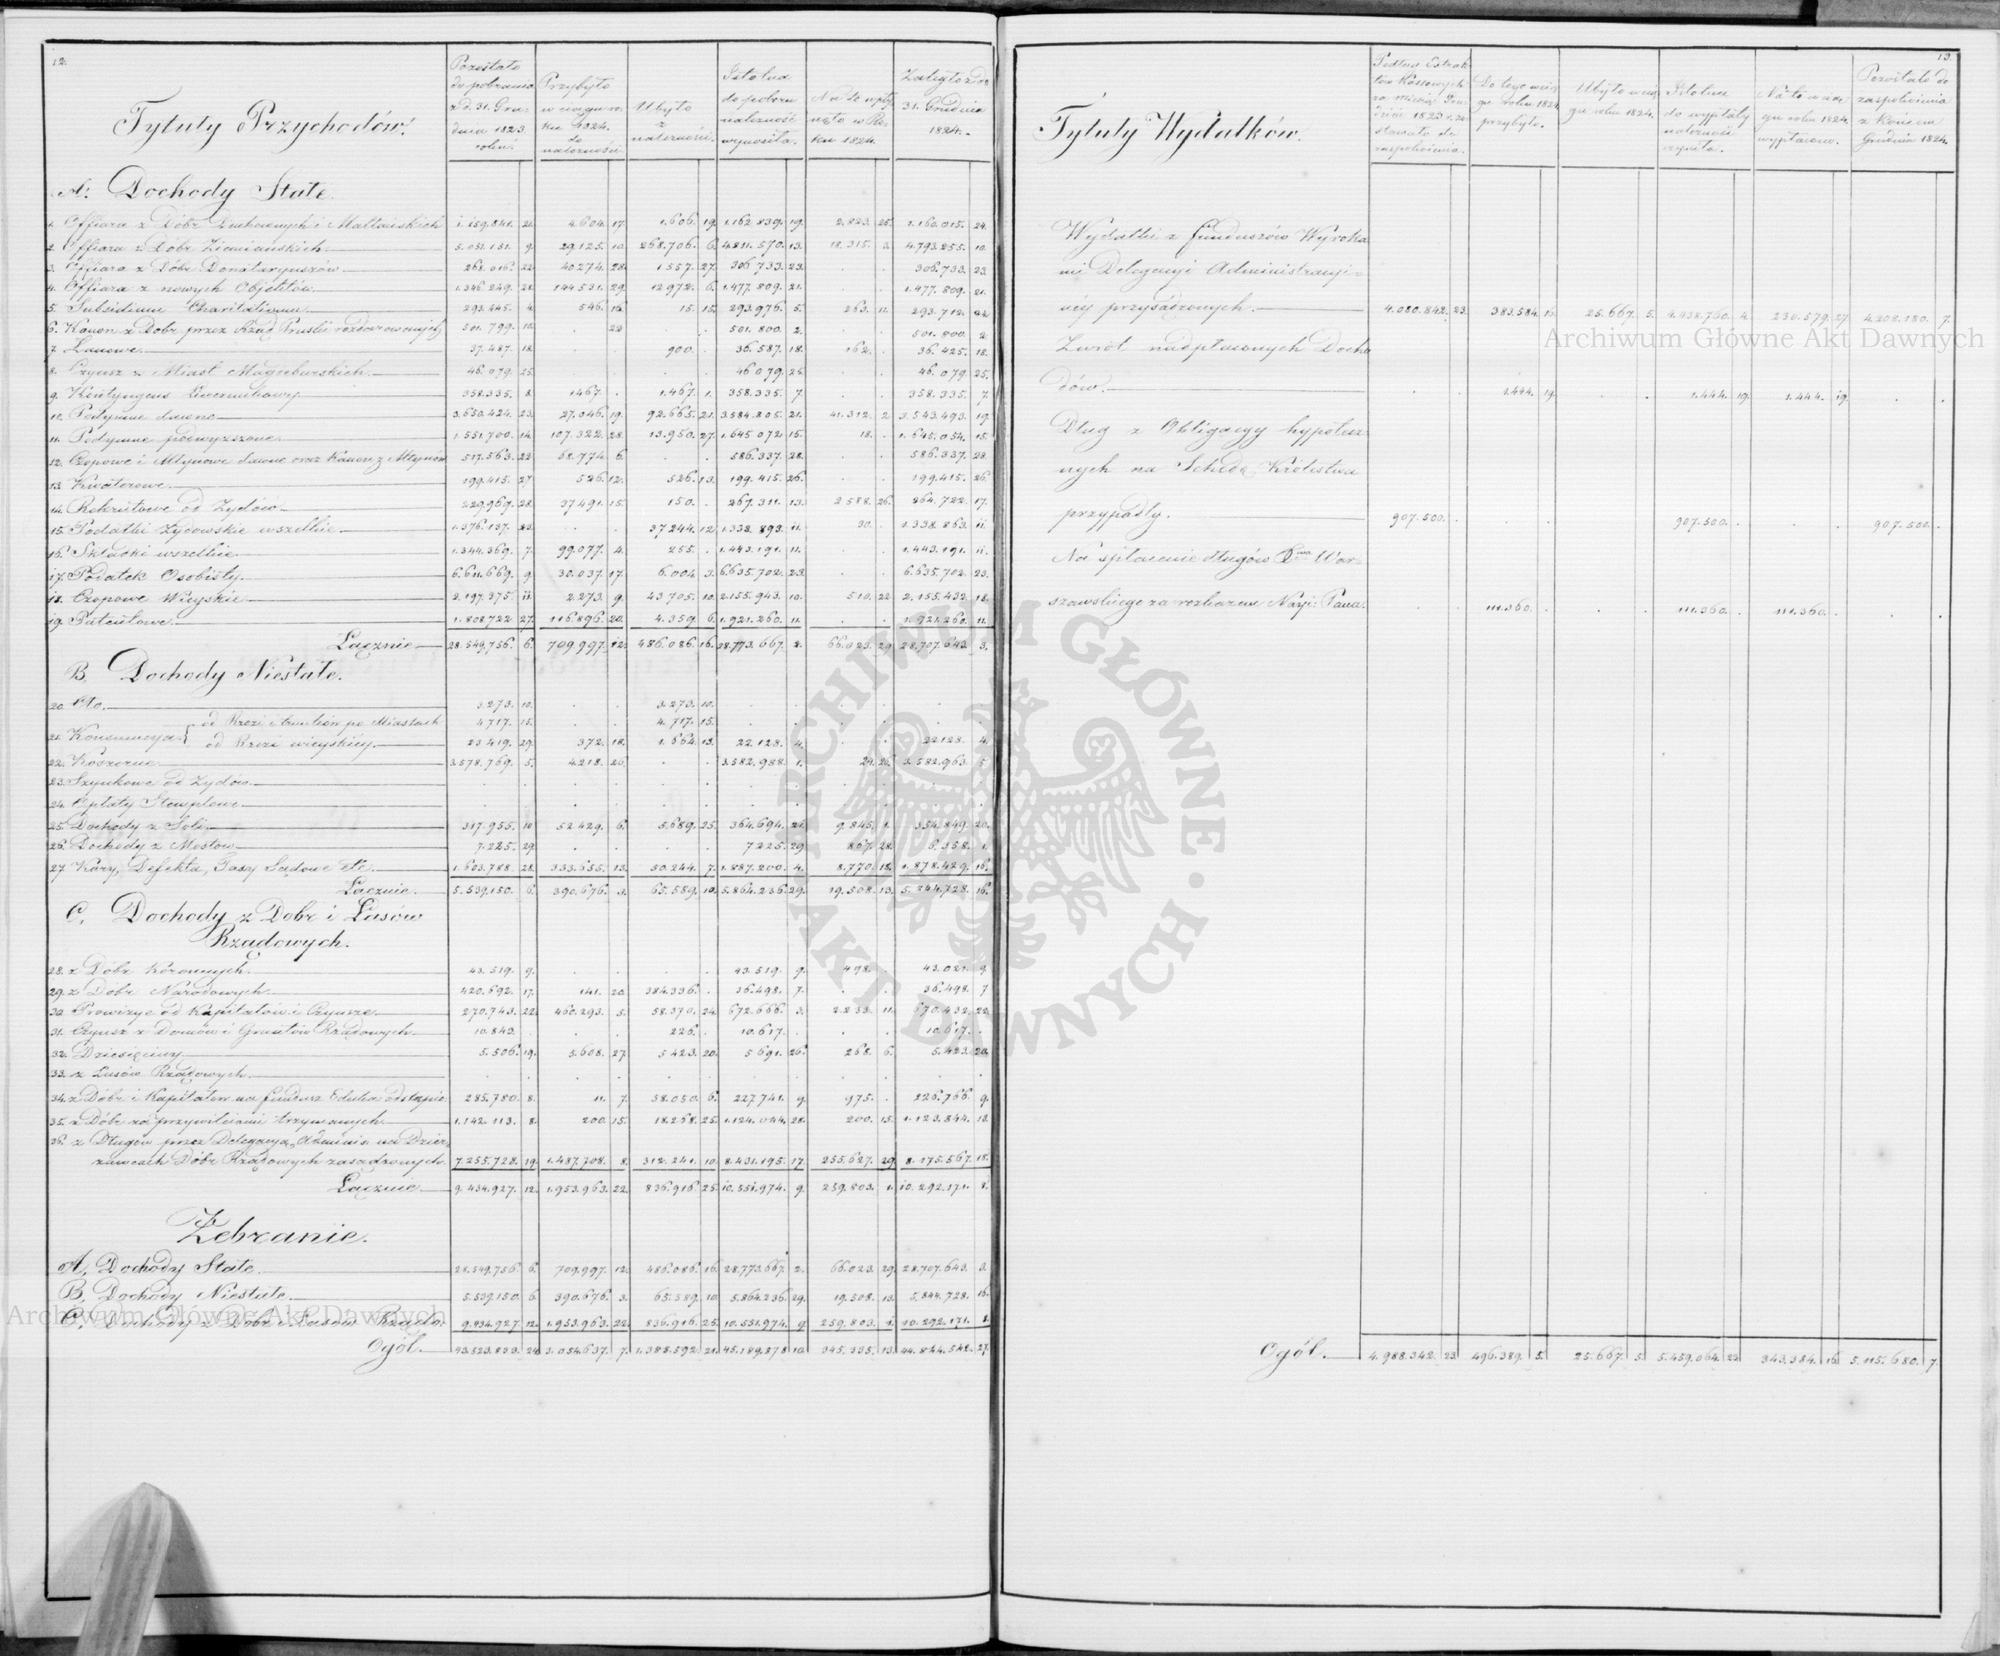 12.
Tytuły Przychodów.
Pozostało do pobrania z d. 31. Grudnia 1823. roku.
Przybyło w ciągu roku 1824. to należności
Ubyło z należności.
Istotna do poboru należność wynosiła.
Na to wpłynęło w Roku 1824.
Zaległo z dn. 31. Grudnia 1824.
A. Dochody Stałe.
1. Offiara z Dóbr Duchownych i Maltańskich 1.159.841. 21. 4.604. 17. 1.606. 19. 1.162.839. 19. 2.823. 25. 1.160.015. 24.
2. Offiara z Dóbr Ziemiańskich 5.051.151. 9. 29.125. 10. 268.706. 6. 4.811.570. 13. 18.315. 3. 4.793.255. 10.
3. Offiara z Dóbr Donataryuszów 268.016. 22. 40274. 28. 1557. 27. 306.733. 23. . . 306.733. 23.
4. Offiara z nowych Objektów 1.346.249. 28. 144531. 29. 12972. 6. 1.477.809. 21. . . 1.477.809. 21.
5. Subsidium Charitativum 293.445. 4. 546. 16. 15. 15. 293.976. 5. 263. 11. 293.712. 24.
6. Kanon z Dobr przez Rząd Pruski rozdarowanych 501.799. 10. . 22. . . 501.800. 2. . . 501.800. 2.
7. Łanowe 37.487. 18. . . 900. . 36.587. 18. 162. . 36.425. 18.
8. Czynsz z Miast Magdeburskich 46.079. 25. . . . . 46.079. 25. . . 46.079. 25.
9. Kontyngens Liwerunkowy 358.335. 8. 1467. . 1.467. 1. 358.335. 7. . . 358.335. 7.
10. Podymne dawne 3.650.424. 23. 27.046. 19. 92.665. 21. 3.584.805. 21. 41.312. 2. 3.543.493. 19.
11. Podymne podwyższone 1.551.700. 14. 107.322. 28. 13.950. 27. 1.645.072. 15. 18. . 1.645.054. 15.
12. Czopowe i Młynowe dawne oraz Kanon z Młynów 517.563. 22. 68.774. 6. . . 586.337. 28. . . 586.337. 28.
13. Kwaterowe 199.415. 27. 526. 12. 526. 13. 199.415. 26. . . 199.415. 26.
14. Rekrutowe od Żydów 229.969. 28. 37491. 15. 150. . 267.311. 13. 2588. 26. 264.722. 17.
15. Podatki Żydowskie wszelkie 1.376.137. 23. . . 37244. 12. 1.338.893. 11. 30. . 1.338.863. 11.
16. Składki wszelkie 1.344.369. 7. 99.077. 4. 255. . 1.443.191. 11. . . 1.443.191. 11.
17. Podatek Osobisty 6.611.669. 9. 30.037. 17. 6.004. 3. 6.635.702. 23. . . 6.635.702. 23.
18. Czopowe Wieyskie 2.197.375. 11. 2.273. 9. 43705. 10. 2.155.943. 10. 510. 22. 2.155.432. 18.
19. Patentowe 1.808.722. 27. 116.896. 20. 4.359. 6. 1.921.260. 11. . . 1.921.260. 11.
Łącznie 28.549.756. 6. 709.997. 12. 486.086. 16. 28.773.667. 2. 66.023. 29. 28.707.643. 3.
B. Dochody Niestałe.
20. Cło. 3.273. 10. . . 3.273. 10.
21. Konsumcya od Rzezi i trunków po Miastach 4717. 15. . . 4.717. 15.
od Rzezi wieyskiey 23419. 29. 372. 18. 1.664. 13. 22.128. 4. . . 22128. 4.
22. Koszerne 3.578.769. 5. 4218. 26. . . 3.582.988. 1. 24. 26. 3.582.963. 5.
23. Szynkowe od Żydów
24. Opłaty Stemplowe
25. Dochody z Soli 317.955. 10. 52429. 6. 5.689. 25. 364.694. 21. 9.845. 1. 354.849. 20.
26. Dochody z Mostów 7.225. 29. . . . . 7225. 29. 867. 28. 6.358. 1.
27. Kary, Defekta, Taxy Sądowe etc. 1.603.788. 28. 333.655. 13. 50.244. 7. 1.887.200. 4. 8.770. 18. 1.878.429. 16.
Łącznie 5.539.150. 6. 390.676. 3. 65.589. 10. 5.864.236. 29. 19.508. 13. 5.844.728. 16.
C. Dochody z Dobr i Lasów
Rządowych.
28. z Dóbr Koronnych 43.519. 9. . . . . 43.519. 9. 498. . 43.021. 9.
29. z Dobr Narodowych 420.692. 17. 141. 20. 384.336. . 36.498. 7. . . 36.498. 7.
30. Prowizye od Kapitałów i Czynsze 270.743. 22. 460.293. 5. 58.370. 24. 672.666. 3. 2233. 11. 670.432. 22.
31. Czynsz z Domów i Gruntów Rządowych 10.843. . . . 226. . 10.617. . . . 10.617. .
32. Dziesięciny 5.506. 19. 5.608. 27. 5423. 20. 5691. 26. 268. 6. 5.423. 20.
33. z Lasów Rządowych
34. z Dóbr i Kapitałów na fundusz Eduka odstąpio: 285.780. 8. 11. 7. 58.050. 6. 227.741. 9. 975. . 226.766. 9.
35. z Dóbr za przywilejami trzymanych 1.142.113. 8. 200. 15. 18.268. 25. 1.124.044. 28. 200. 15. 1.123.844. 13.
36. z Długów przez Delegacyą Adminis: na Dzier-
żawcach Dóbr Rządowych zasądzonych. 7.255.728. 19. 1.487.708. 8. 312.241. 10. 8.431.195. 17. 255.627. 29. 8.175.567. 18.
Łącznie 9.434.927. 12. 1.953.963. 22. 836.916. 25. 10.551.974. 9. 259.803. 1. 10.292.171. 8.
Zebranie.
A, Dochody Stałe 28.549.756. 6. 709.997. 12. 486.086. 16. 28.773.667. 2. 66.023. 29. 28.707.643. 3.
B, Dochody Niestałe 5.539.150. 6. 390.676. 3. 65.589. 10. 5.864.236. 29. 19.508. 13. 5.844.728. 16.
C, Dochody z Dobr i Lasów Rządo: 9.434.927. 12. 1.953.963. 22. 836.916. 25. 10.551.974. 9. 259.803. 1. 10.292.171. 8.
Ogół. 43.523.833. 24. 3.054.637. 7. 1.388.592. 21. 45.189.878. 10. 345.335. 13. 44.844.542. 27.
13.
Tytuły Wydatków.
Podług Extraktów Kassowych za Miesiąc Grudzień 1823 r. zostawało do zaspokoienia.
Do tego w ciągu roku 1824 przybyło.
Ubyło w ciągu roku 1824.
Istotna do wypłaty należność czyniła.
Na to w ciągu roku 1824. wypłacono.
Pozostało do zaspokoienia z Końcem Grudnia 1824.
Wydatki z funduszów Wyroka-
mi Delegacyi Administracyi-
néy przysądzonych. 4.080.842. 23. 383.584. 16. 25.667. 5. 4.438.760. 4. 230.579. 27. 4.208.180. 7.
Zwrot nadpłaconych Docho
dów. . . 1.444. 19. . . 1.444. 19. 1.444. 19. . .
Dług z Obligacyy hypotecz
nych na Schedę Królestwa
przypadły. 907.500. . . . . . 907.500. . . . 907.500. .
Na spłacenie długów Xwa War-
szawskiego za rozkazem Nayj: Pana. . . 111.360. . . . 111.360. . 111.360. . . .
Ogół. 4.988.342. 23. 496.389. 5. 25.667. 5. 5.459.064. 23. 343.384. 16. 5.115.680. 7.
Archiwum Główne Akt Dawnych
Archiwum Główne Akt Dawnych
ARCHIWUM GŁÓWNE • AKT DAWNYCH •